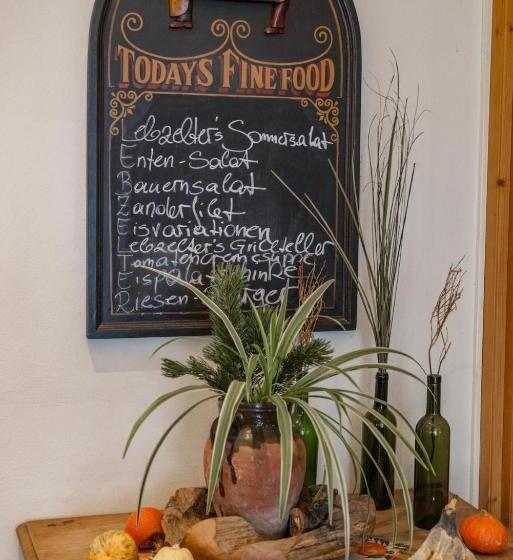 TODAY'S FINE FOOD
Lebzelter's Sommersalat
Enten-Salat
Bauernsalat
Zanderfilet
Eisvariationen
Lebzelter's Grillteller
Tomatencremesuppe
Riesen-